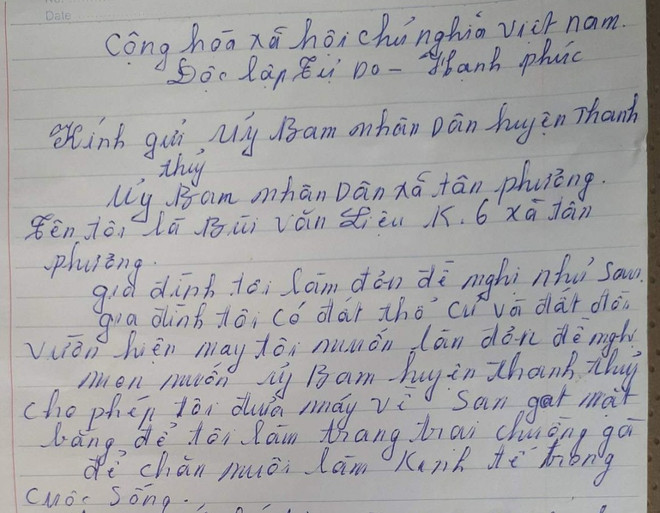 Date
Cộng hòa xã hội chủ nghĩa việt nam.
Độc lập Tự Do - Hạnh phúc
Kính gửi Uỷ Bam nhân Dân huyện Thanh
thuỷ
Uỷ Bam nhân Dân xã tân phương.
Tên tôi là Bùi Văn Liệu K.6 xã tân
phương.
gia đình tôi làm đơn đề nghị như sau.
gia đình tôi có đất thổ cư và đất đồi
vườn hiện nay tôi muốn làn đơn đề nghị
mon muốn uỷ Bam huyện thanh thuỷ
cho phép tôi đưa máy về san gạt mặt
bằng để tôi làm trang trai chuồng gà
để chăn nuôi làm kinh tế trong
cuộc sống.